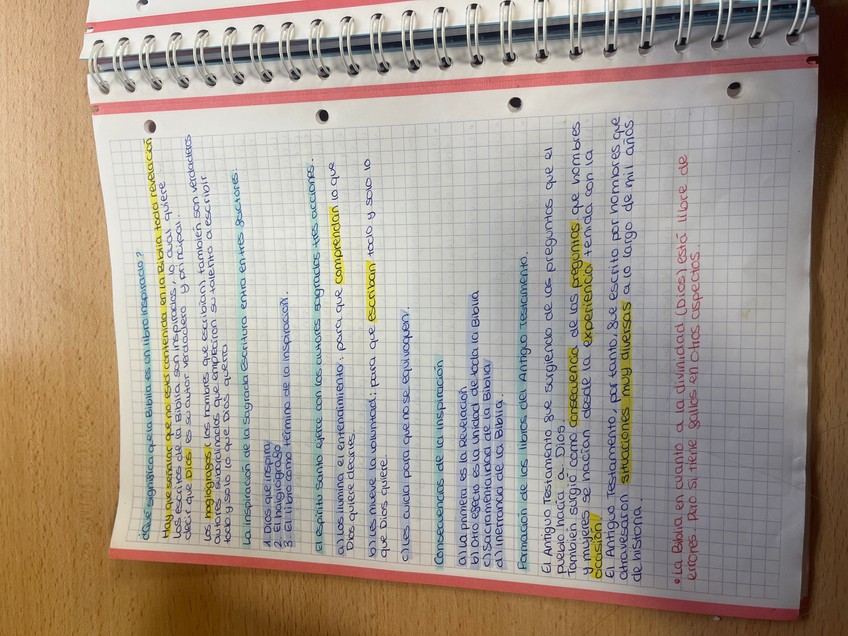 ¿Qué significa que la Biblia es un libro inspirado?
Hay que señalar que no está contenida en la Biblia toda revelación
los escritos de la Biblia son inspirados, lo cual quiere
decir que Dios es su autor verdadero y principal.
Los hagiografos (los hombres que escribían) también son verdaderos
autores subordinados que emplearon su talento a escribir
todo y solo lo que Dios quería
La inspiración de la Sagrada Escritura entra en tres factores.
1. Dios que inspira
2. El haigiografo
3. El libro como término de la inspiración.
El espíritu santo ejerce con los autores sagrados tres acciones.
a) Los ilumina el entendimiento: para que comprendan lo que
Dios quiere decirles.
b) Les mueve la voluntad: para que escriban todo y solo lo
que Dios quiere.
c) Les cuida para que no se equivoquen.
Consecuencias de la inspiración
a) La primera es la Revelación
b) Otro efecto es la unidad de toda la Biblia
c) Sacramentalidad de la Biblia
d) Inerrancia de la Biblia.
Formación de los libros del Antiguo Testamento.
El Antiguo Testamento fue surgiendo de las preguntas que el
pueblo hacía a Dios.
También surgió como consecuencia de las preguntas que hombres
y mujeres se hacían desde la experiencia tenida con la
ocasión.
El Antiguo Testamento, por tanto, fue escrito por hombres que
atravesaron situaciones muy diversas a lo largo de mil años
de historia.
• La Biblia en cuanto a la divinidad (Dios) está libre de
errores. Pero si tiene fallos en otros aspectos.